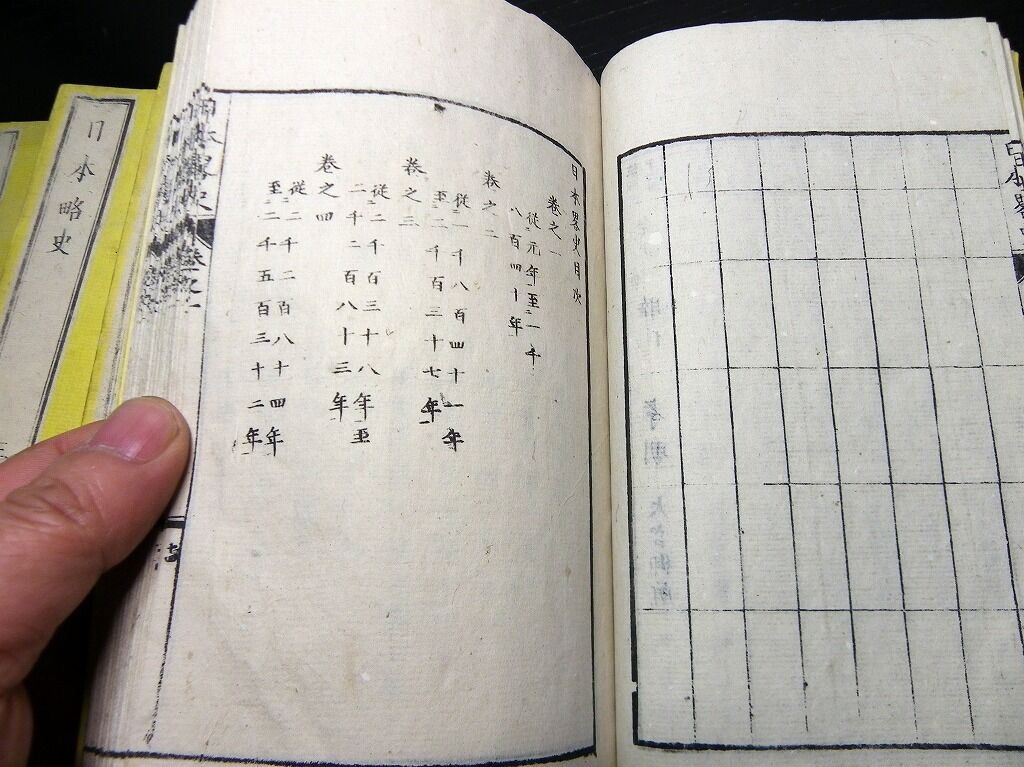 日本畧史目次
卷之一
従元年至一千
八百四十年
卷之二
従一千八百四十一年
至二千百三十七年
卷之三
従二千百三十八年至
二千二百八十三年
卷之四
従二千二百八十四年
至二千五百三十二年
日本畧史
卷之一
日本略史